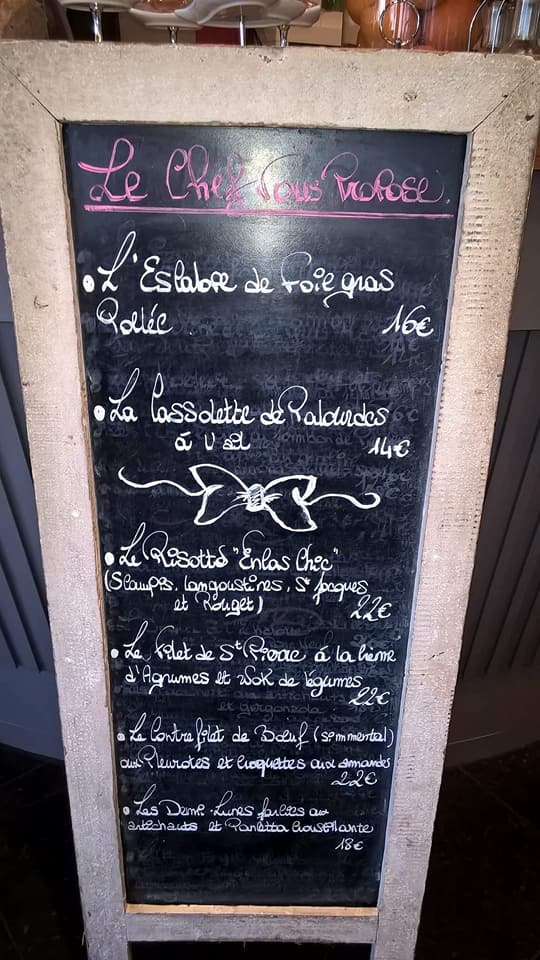 Le Chef Vous Propose.
• L'Escalope de Foie gras
Poêlée 16€
• La Cassolette de Palourdes
à l'ail 14€
• Le Risotto "Enlas Chic"
(Scampis, langoustines, St Jacques
et Rouget) 22€
• Le Filet de St Pierre à la crème
d'Agrumes et Wok de légumes
22€
• Le Contre filet de Bœuf (simmental)
aux Pleurotes et croquettes aux amandes
22€
• Les Demi-Lunes farcies aux
artichauts et Pancetta croustillante
18€